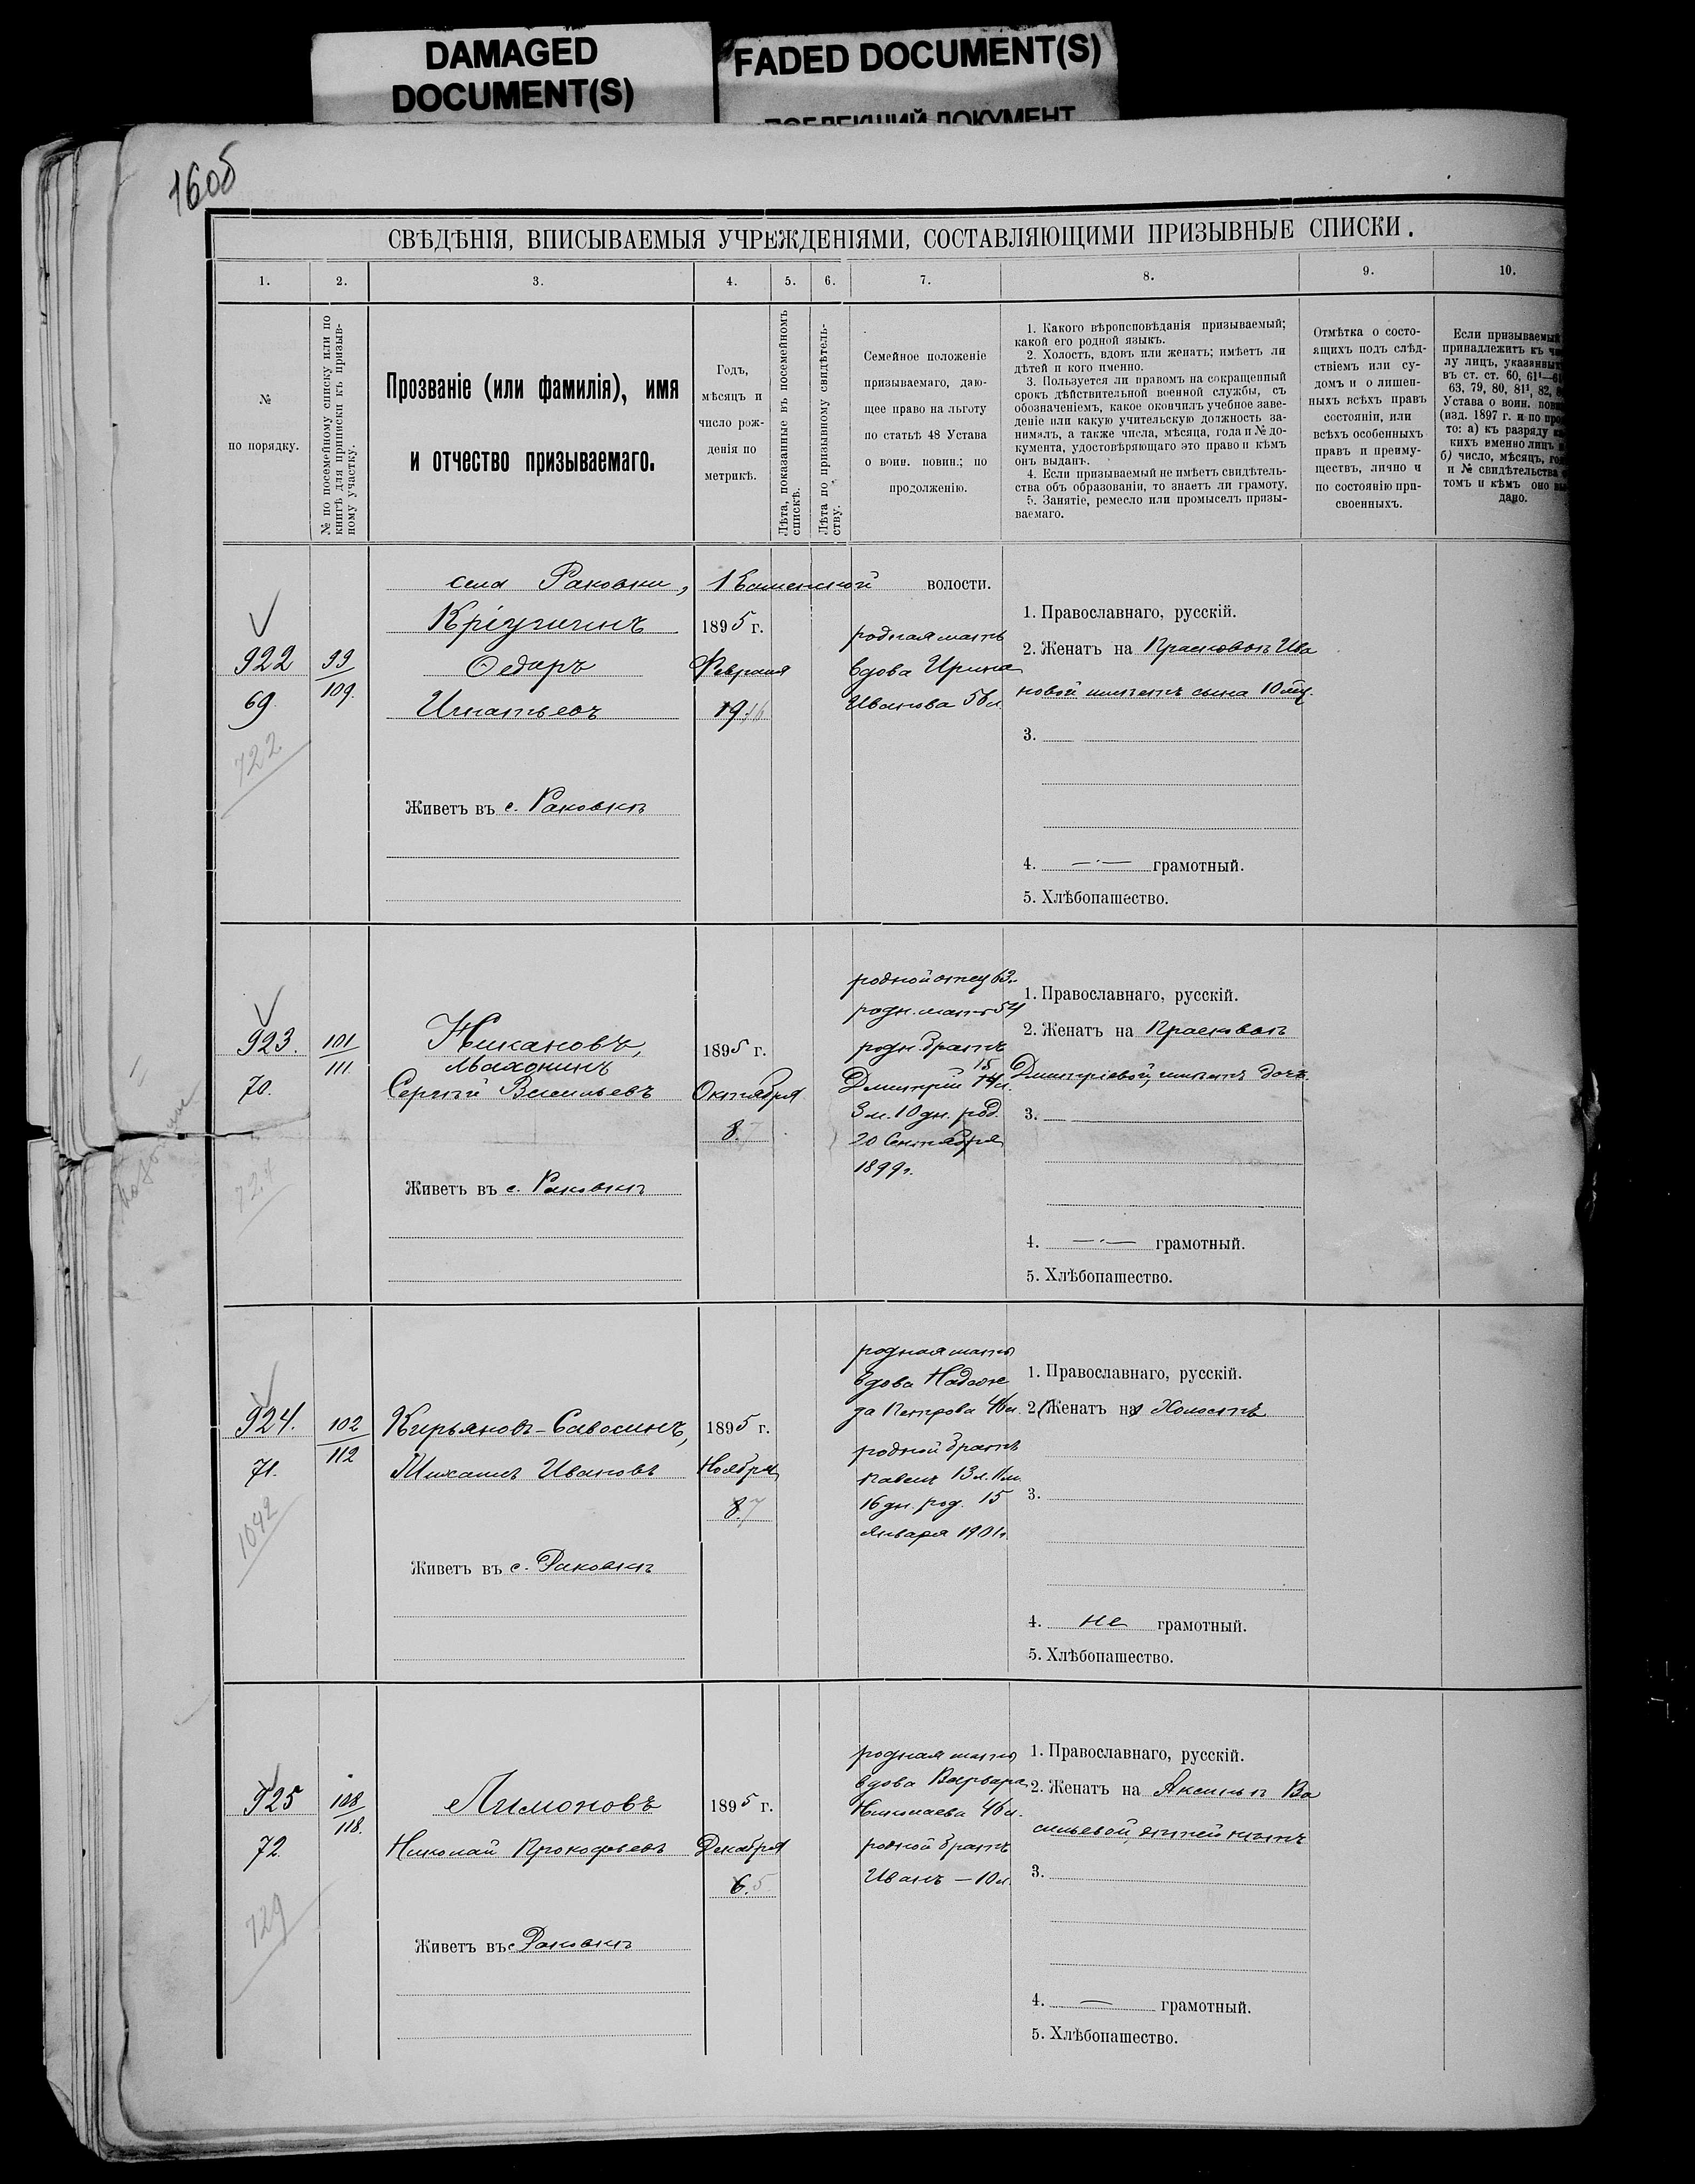 DAMAGED
DOCUMENT(S)
FADED DOCUMENT(S)
160б
СВѢДѢНІЯ, ВПИСЫВАЕМЫЯ УЧРЕЖДЕНІЯМИ, СОСТАВЛЯЮЩИМИ ПРИЗЫВНЫЕ СПИСКИ.
1. 2. 3. 4. 5. 6. 7. 8. 9. 10.
№
по порядку.
№ по посемейному списку или по
книгѣ для приписки къ призыв-
ному участку.
Прозваніе (или фамилія), имя
и отчество призываемаго.
Годъ,
мѣсяцъ и
число рож-
денія по
метрикѣ.
Лѣта, показанные въ посемейномъ
спискѣ.
Лѣта по призывному свидѣтель-
ству.
Семейное положеніе
призываемаго, даю-
щее право на льготу
по статьѣ 48 Устава
о воин. повин.; по
продолженію.
1. Какого вѣроисповѣданія призываемый;
какой его родной языкъ.
2. Холостъ, вдовъ или женатъ; имѣетъ ли
дѣтей и кого именно.
3. Пользуется ли правомъ на сокращенный
срокъ дѣйствительной военной службы, съ
обозначеніемъ, какое окончилъ учебное заве-
деніе или какую учительскую должность за-
нималъ, а также числа, мѣсяца, года и № до-
кумента, удостовѣряющаго это право и кѣмъ
онъ выданъ.
4. Если призываемый не имѣетъ свидѣтель-
ства объ образованіи, то знаетъ ли грамоту.
5. Занятіе, ремесло или промыселъ призы-
ваемаго.
Отмѣтка о состо-
ящихъ подъ слѣд-
ствіемъ или су-
домъ и о лишен-
ныхъ всѣхъ правъ
состоянія, или
всѣхъ особенныхъ
правъ и преиму-
ществъ, лично и
по состоянію при-
своенныхъ.
Если призываемый
принадлежитъ къ
лу лицъ, указанных
въ ст. ст. 60, 61¹—
63, 79, 80, 81¹, 82,
Устава о воин. пов
(изд. 1897 г. и по
то: а) къ разряду
кихъ именно лицъ
б) число, мѣсяцъ, го
и № свидѣтельства
томъ и кѣмъ оно
дано.
села Раковки, волости.
922
69.
722.
99
109.
Ѳедоръ
Игнатьевъ
Живетъ въ с. Раковкѣ
1895 г.
Февраля
19
родная мать
вдова Ирина
Иванова 56 л.
1. Православнаго, русскій.
2. Женатъ на Прасковьѣ Ива
новой имѣетъ сына 10 мѣс.
3.
4. —·— грамотный.
5. Хлѣбопашество.
923.
70.
724
101
111.
Никановъ,
Сергѣй Васильевъ
Живетъ въ с. Раковкѣ
1895 г.
Октября
8. 7
родной отец 63 л.
родн. мать 54
родн. братъ
15
Дмитрій 14 л.
3 м. 10 дн. род.
20 Сентября
1899 г.
1. Православнаго, русскій.
2. Женатъ на Прасковьѣ
Дмитріевой, имѣетъ дочь.
3.
4. —·— грамотный.
5. Хлѣбопашество.
924.
71.
1042
102
112
Кирьяновъ-Савосинъ,
Михаилъ Ивановъ
Живетъ въ с. Раковкѣ
1895 г.
Ноября
8. 7
родная мать
вдова Надеж
да Петрова 46 л.
родной братъ
Павелъ 13 л. 11 м.
16 дн. род. 15
Января 1901 г.
1. Православнаго, русскій.
2. Женатъ на Холостъ
3.
4. не грамотный.
5. Хлѣбопашество.
925
72.
729
108
118.
Лимоновъ
Николай Прокофьевъ
Живетъ въ с. Раковкѣ
1895 г.
Декабря
6. 5
родная мать
вдова Варвара
Николаева 46 л.
родной братъ
Иванъ — 10 л.
1. Православнаго, русскій.
2. Женатъ на Аксиньѣ Ва
сильевой, дѣтей нѣтъ
3.
4. — грамотный.
5. Хлѣбопашество.